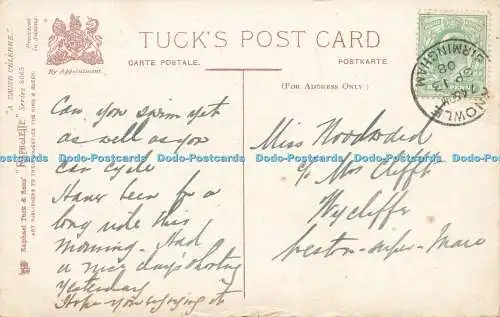 TUCK'S POST CARD
CARTE POSTALE.
POSTKARTE.
(FOR ADDRESS ONLY.)
By Appointment.
"A CAUSE CÉLÈBRE."
Printed in Saxony.
Raphael Tuck & Sons' "Raphaelette" Series 8063
ART PUBLISHERS TO THEIR MAJESTIES THE KING & QUEEN.
KNOWLE
BIRMINGHAM
SP 13
08
Can you swim yet
as well as you
can cycle
Have been for a
long ride this
morning - Had
a nice day's shooting
Yesterday
Hope you enjoying it
Miss Woodward
c/o Mrs Clifft
Wycliffe
Weston-super-Mare
Dodo-Postcards Dodo-Postcards Dodo-Postcards Dodo-Postcards Dodo-Postcards